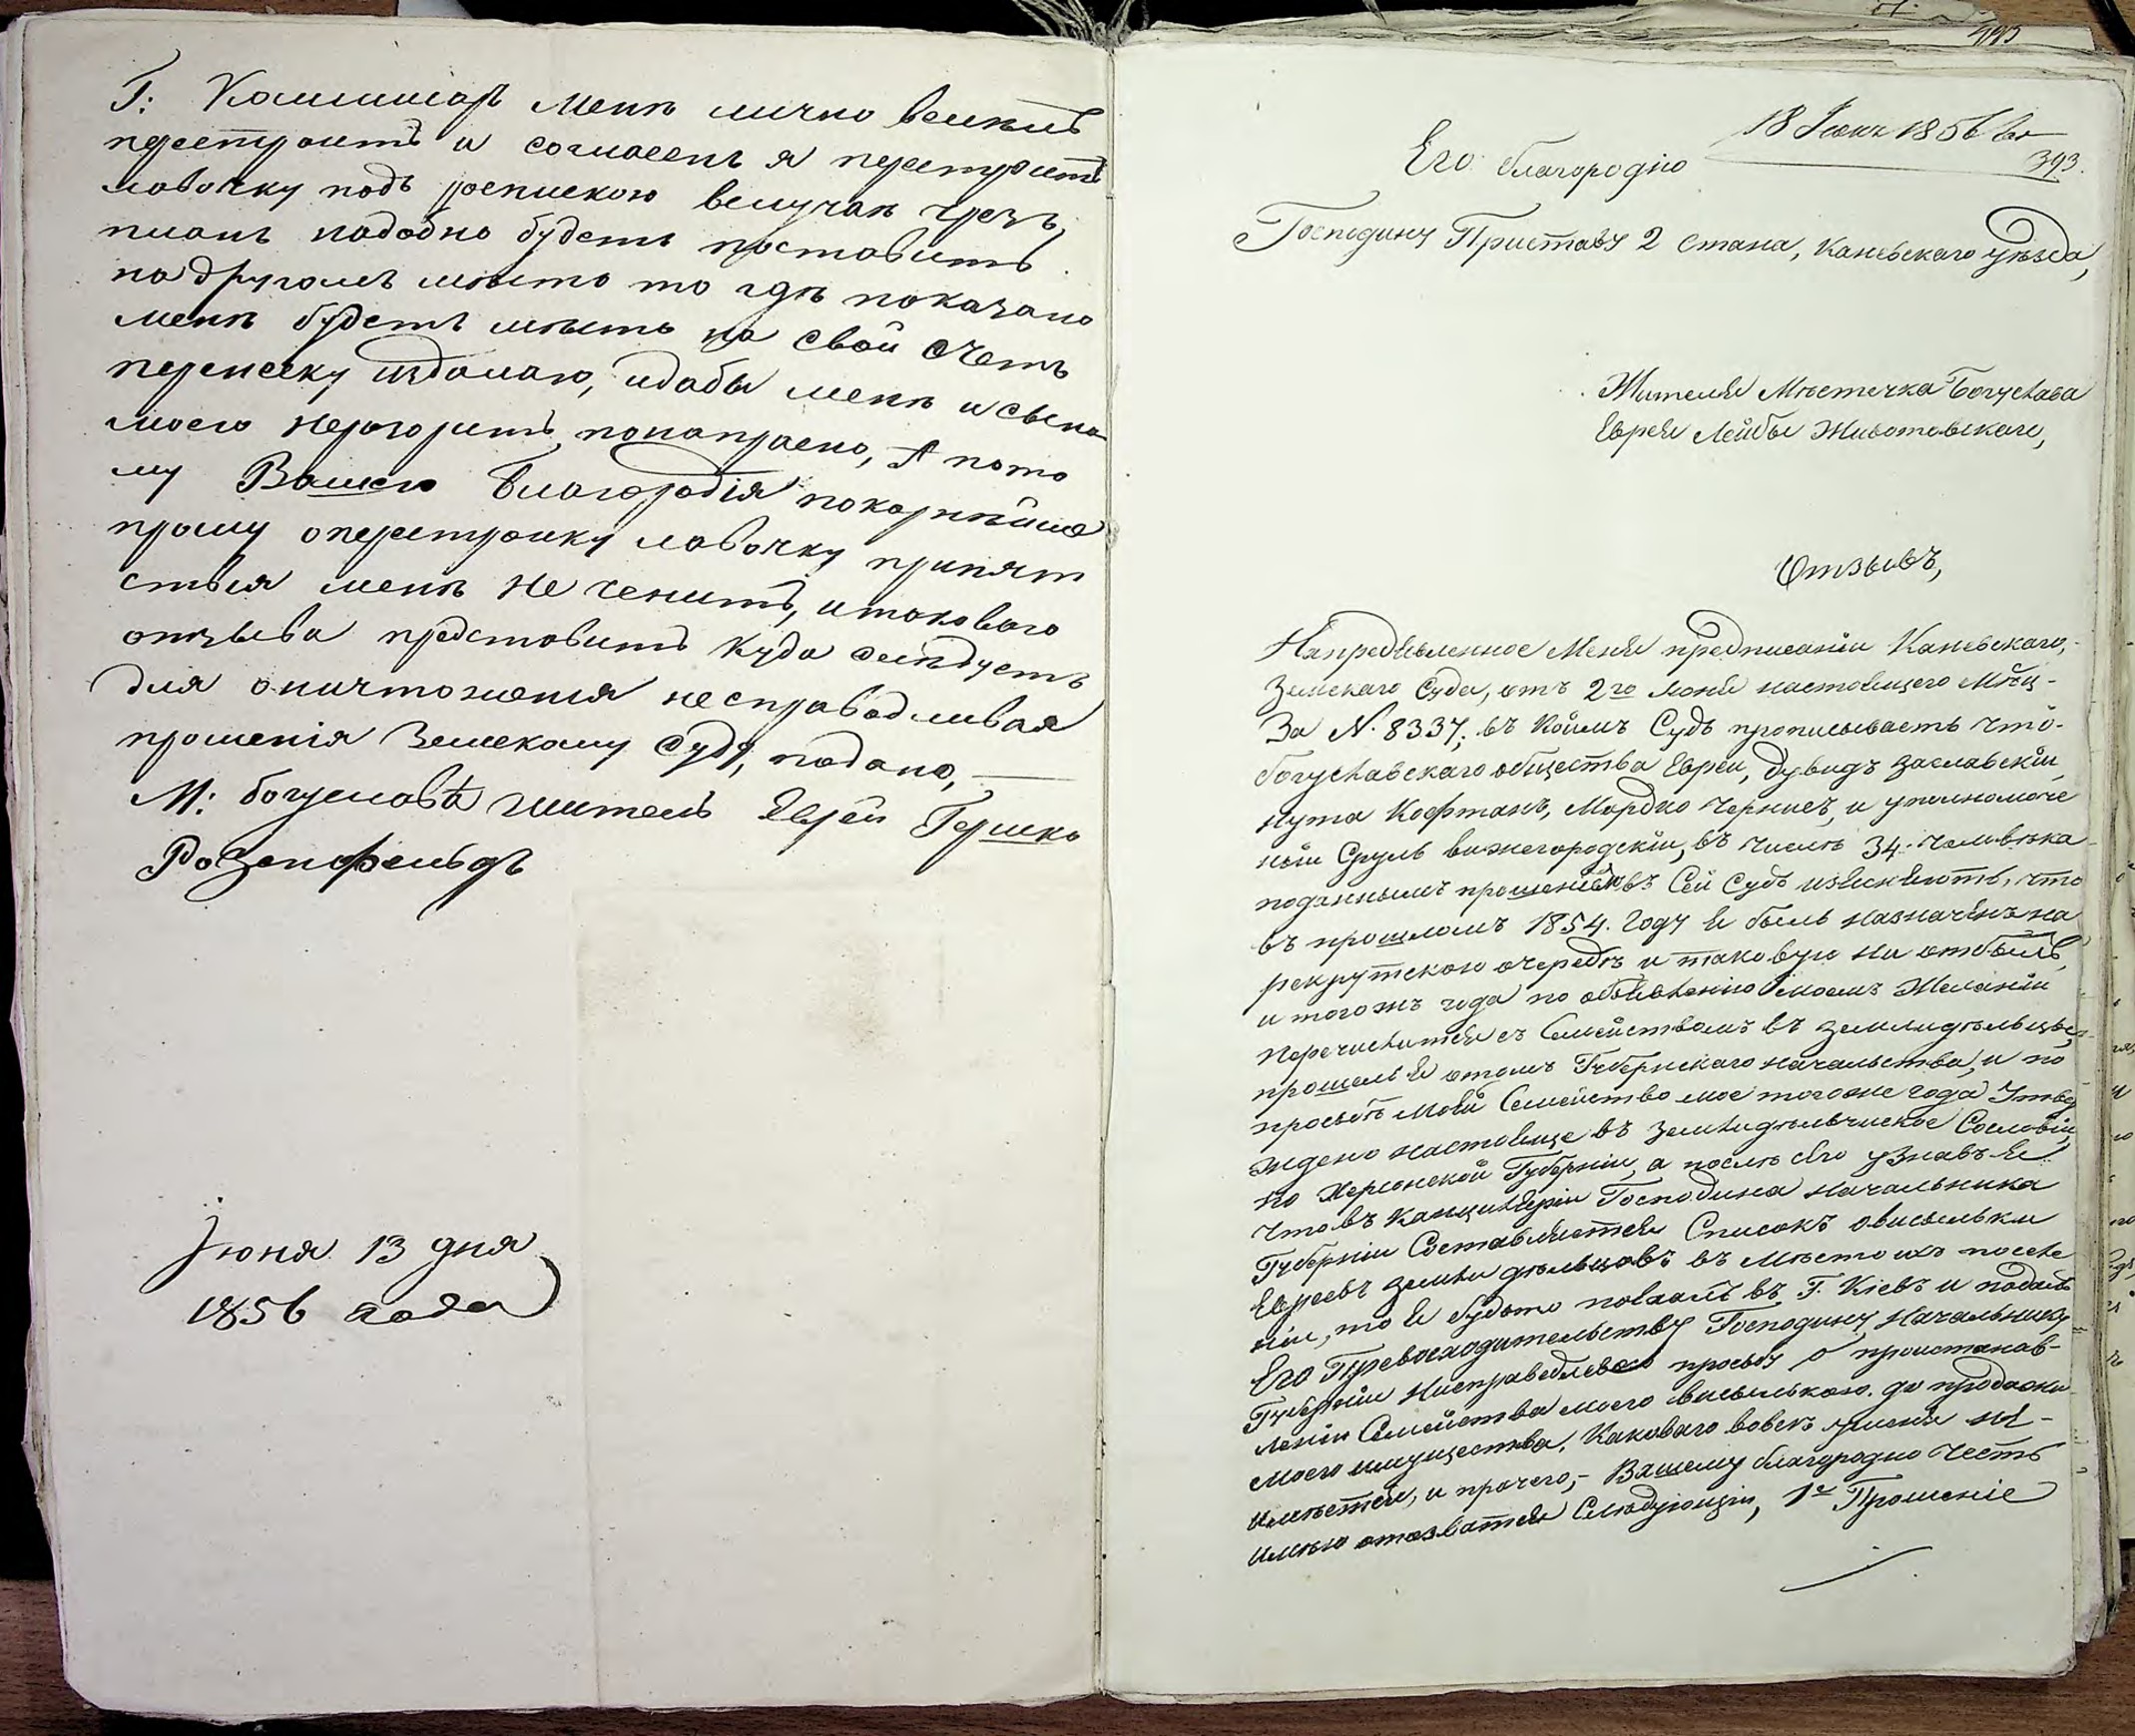 Г: Коммисаръ мене лично велелъ
престроить и согласенъ я перестроить
лавочку подъ роспискою вслучаи чрезъ
планъ надобно будетъ поставить
на другомъ место то где показано
мене будетъ место на свой счетъ
переноску изделаю, идабы мене и сына
моего неразорить понапрасно, А пото
му Вашего Благородія покорнейше
прошу оперестроику лавочку припят
ствія мене не ченить, итаковаго
отзыва представить куда следуетъ
для оничтоженія несправодливая
прошенія Земскому суду, подано,
М: богуслава житель Еврей Гершко
Розенфельдъ
Июня 13 дня
1856 года
495
18 Іюня 1856 го
393.
Его благородію
Господину Приставу 2 стана, Каневскаго уезда,
Жителя Местечка Богуслава
Еврея Лейбы Животовскаго,
Отзывъ,
Напредявленное Меня предписаніи Каневскаго,
Земскаго Суда, отъ 2го Июня настоящего Мец-
За N. 8337; въ коимъ Судъ прописываетъ что-
богуславскаго общества Евреи, Дувидъ Заславскіи
Нута Кофтанъ, Мордко Чернисъ, и уполномоче
ныи Сруль вижегородскіи, въ числе 34. человека
поданнымъ прошеніемъ въ Сей Судъ изясняютъ, что
въ прошломъ 1854. Году я былъ назначенъ на
рекрутскою очередь и таковую ни отбылъ,
и тогожъ года по объявленію моемъ Желаніи
перечислится съ Семействомъ въ землидельцы,
прошелъ я отомъ Губернскаго начальства, и по
просьбе моей Семейство мое того же года Утвер
ждено настояще въ землидельческое Сословіи
по Херсонской Губерніи, а после сего узнавъ я
что въ Канцилеріи Господина начальника
Губерніи Составляется Списокъ овисылки
Евреевъ земли дельцовъ въ место ихъ поселе
ніи, то я будто поехалъ въ Г. Кіевъ и подалъ
Его Превосходительству Господину Начальнику
Губерніи ниправедлевою просьбу о приостанов-
леніи Семейства моего висилькою. до продажи
моего имущества, Каковаго вовсе уменя не-
имеется, и прочего,- Вашему благородію честь
имею отозватся Следующіи, 1е Прошеніе